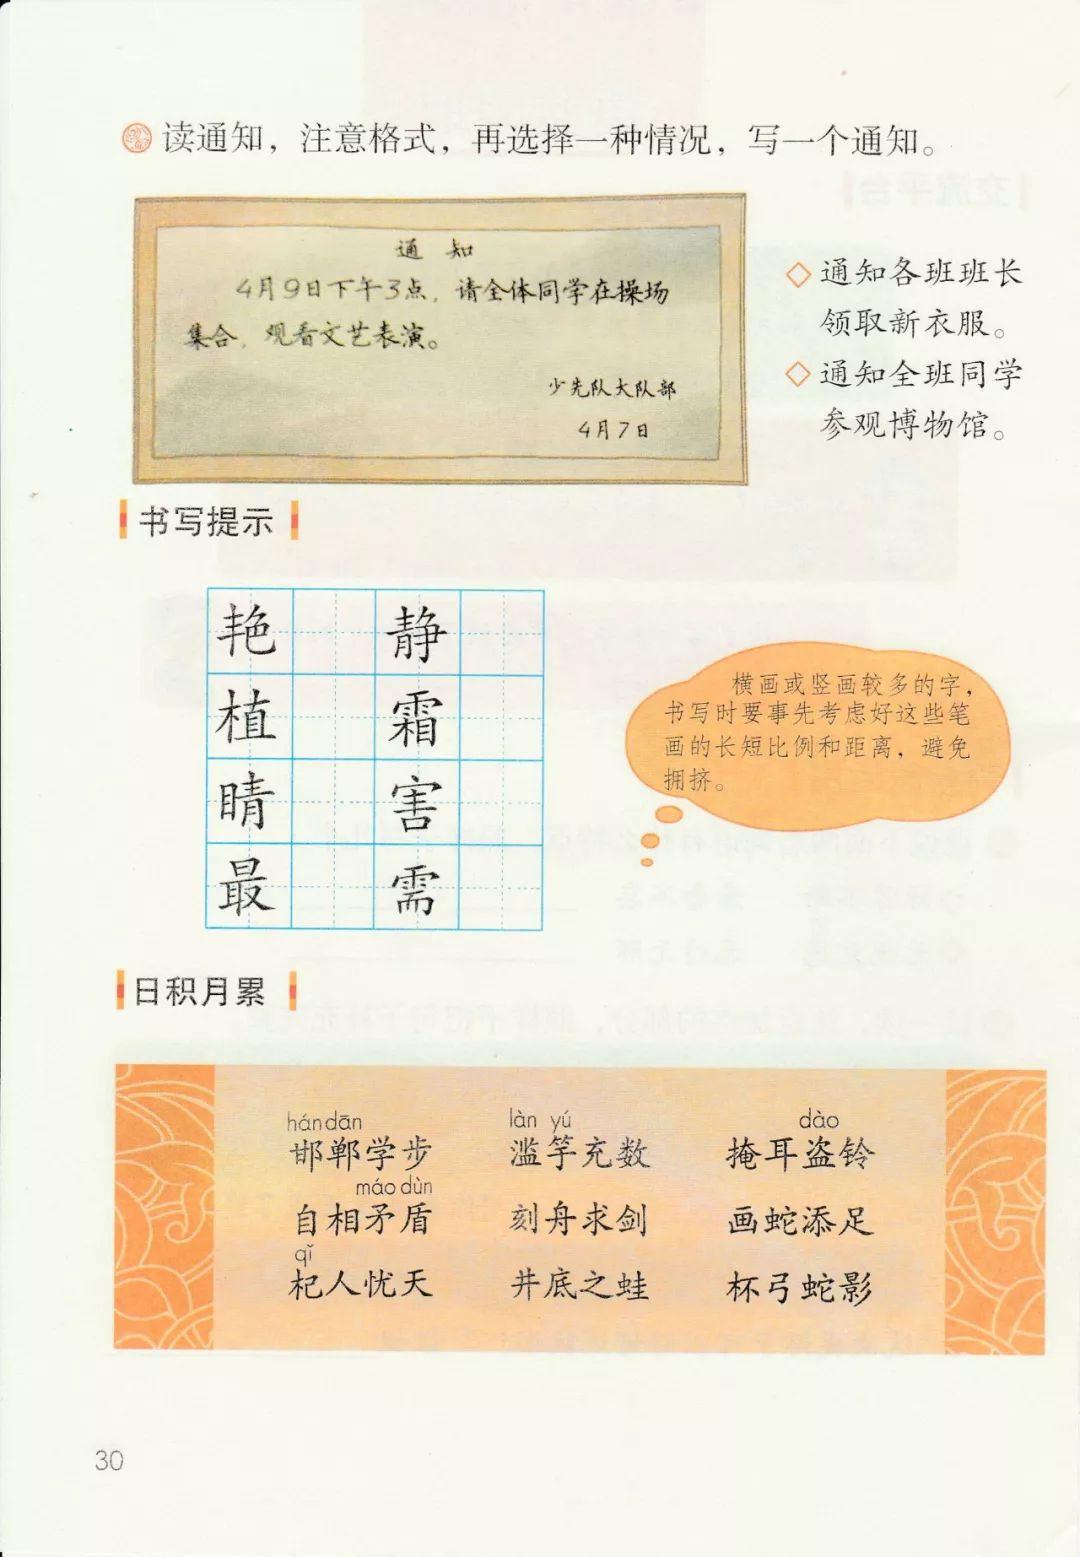 读通知，注意格式，再选择一种情况，写一个通知。
通 知
4月9日下午3点，请全体同学在操场
集合，观看文艺表演。
少先队大队部
4月7日
◇通知各班班长
领取新衣服。
◇通知全班同学
参观博物馆。
书写提示
艳 静
植 霜
晴 害
最 需
横画或竖画较多的字，
书写时要事先考虑好这些笔
画的长短比例和距离，避免
拥挤。
日积月累
hándān làn yú dào
邯郸学步 滥竽充数 掩耳盗铃
máo dùn
自相矛盾 刻舟求剑 画蛇添足
qǐ
杞人忧天 井底之蛙 杯弓蛇影
30